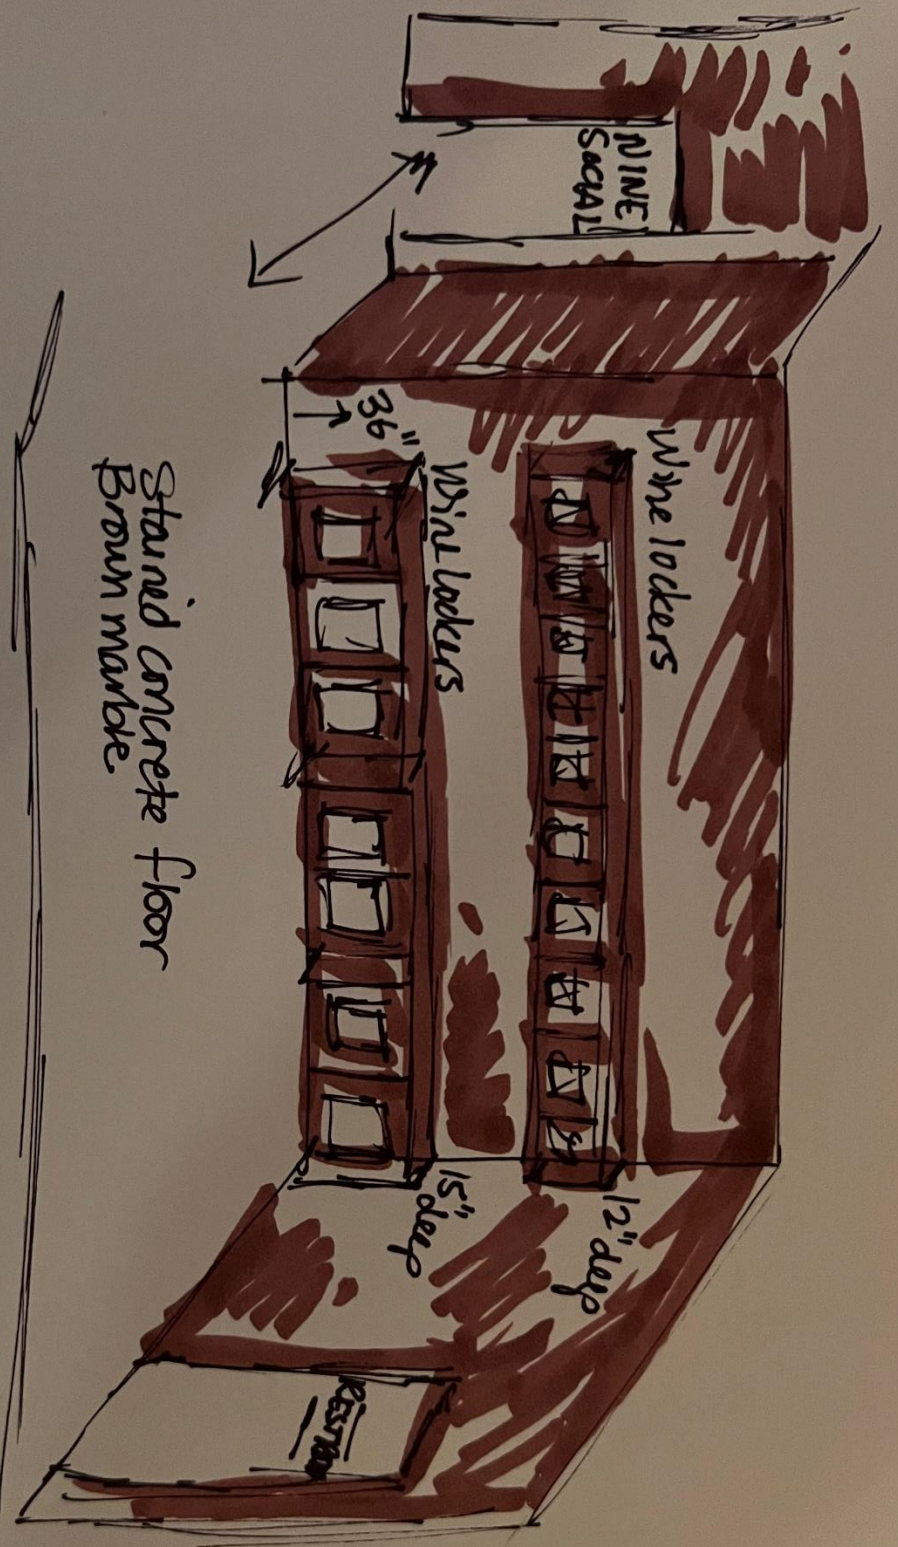 NINE
SOCIAL
Wine lockers
36"
Wine Lockers
12" deep
15" deep
Stained concrete floor
Brown marble.